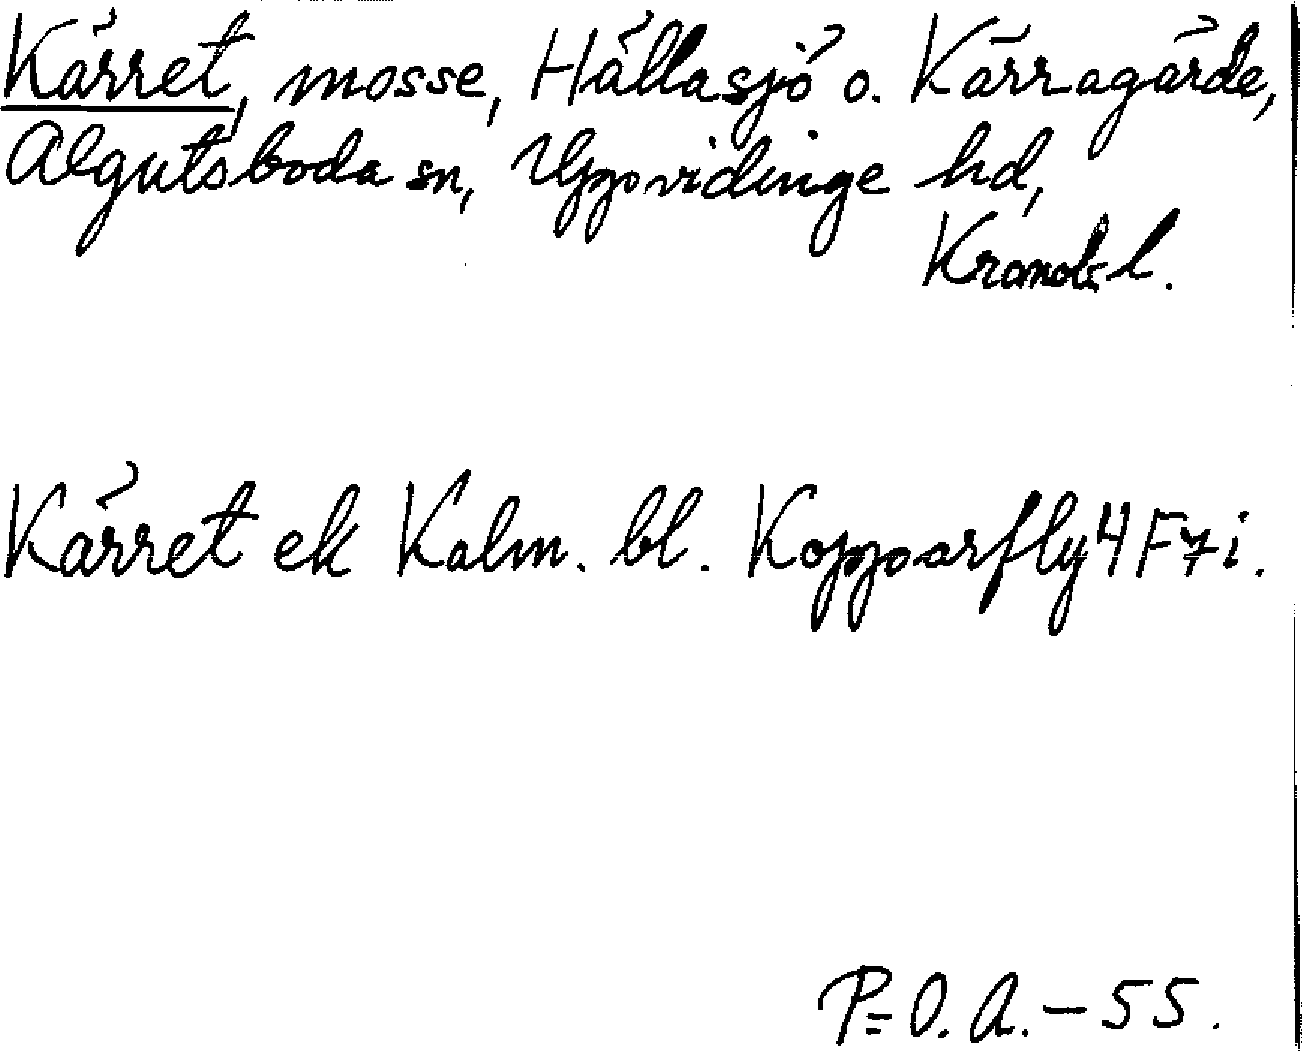 Kärret, mosse, Hällasjö o. Kärragärde,
Algutsboda sn, Uppvidinge hd,
Kronob. l.
Kärret ek Kalm. bl. Kopparfly 4F7i.
P=O.A.-55.